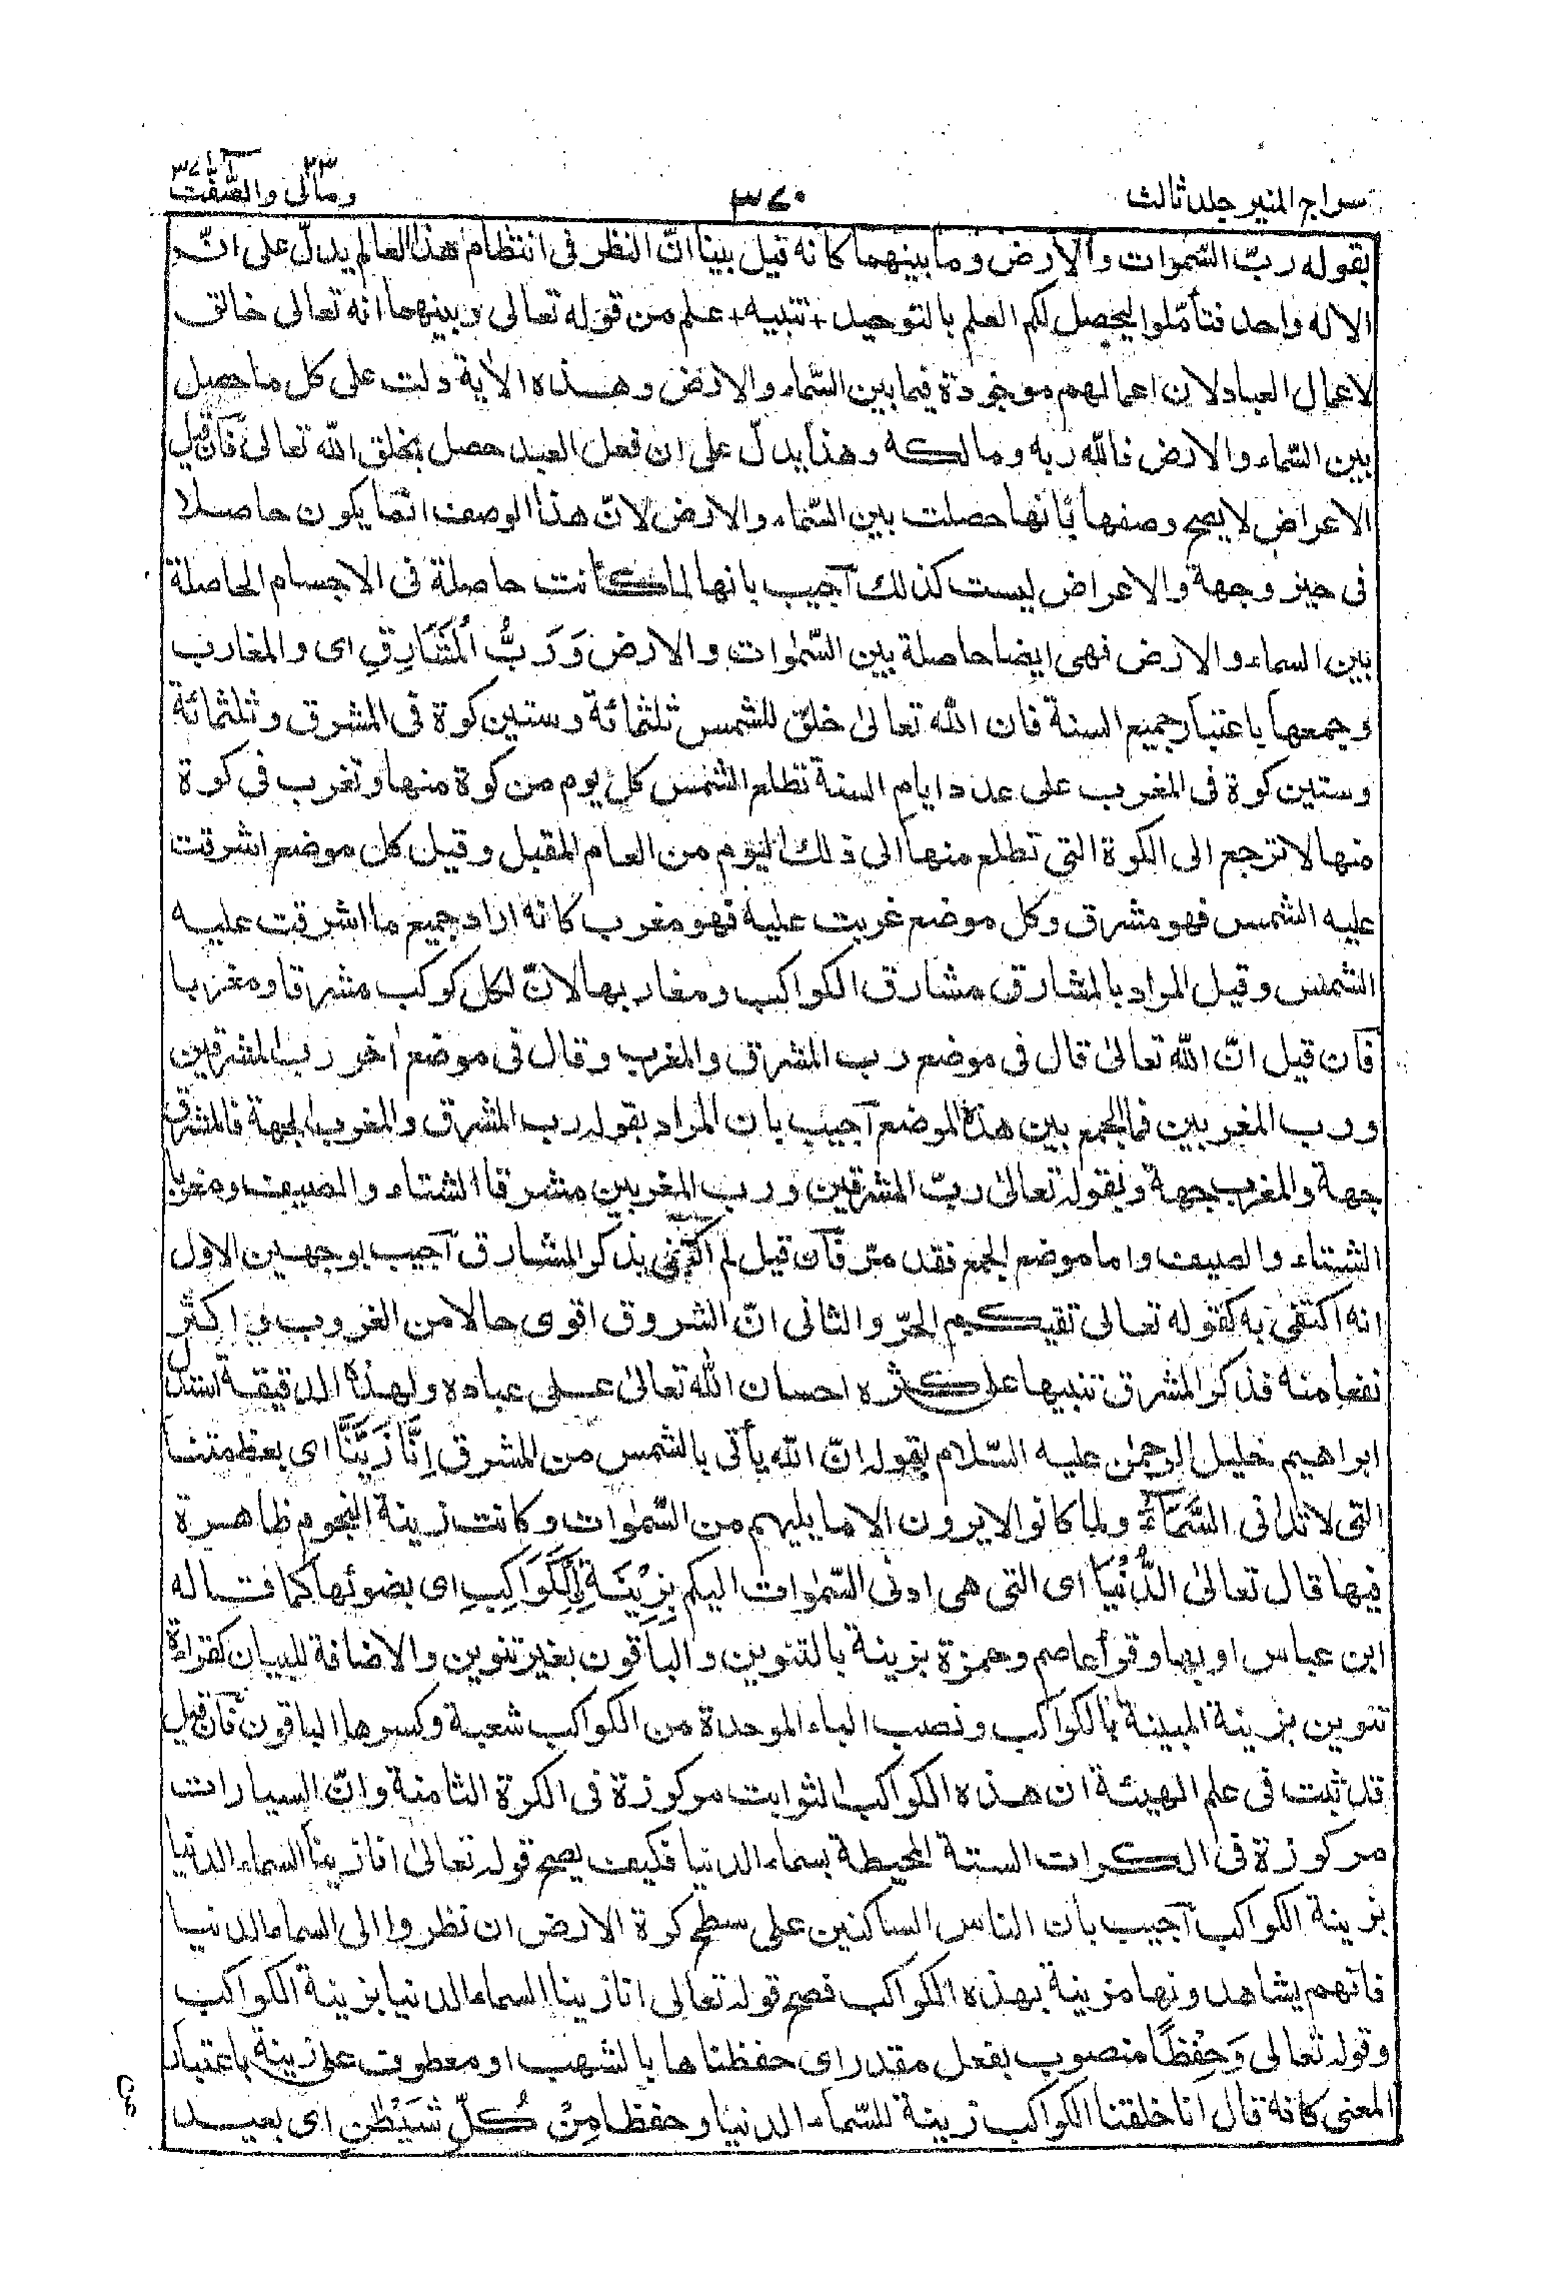 سراج المنير جلد ثالث
٣٧٠
ومالى ٢٣ والصّٰفّٰت ٣٧
بقوله ربّ السّموات والارض وما بينهما كانه قيل بينا انّ النظر فى انتظام هذا العالم يدلّ على انّ
الاله واحد فتأمّلوا ليحصل لكم العلم بالتوحيد + تنبيه + علم من قوله تعالى وبينهما انه تعالى خالق
لاعمال العباد لان اعمالهم موجودة فيما بين السّماء والارض وهذه الاية دلت على كل ما حصل
بين السّماء والارض فالله ربه ومالكه وهذا يدلّ على ان فعل العبد حصل بخلق الله تعالى فآن قيل
الاعراض لا يصح وصفها بانها حصلت بين السّماء والارض لانّ هذا الوصف انّما يكون حاصلا
فى حيز وجهة والاعراض ليست كذلك آجيب بانها لما كانت حاصلة فى الاجسام الحاصلة
بين السماء والارض فهى ايضا حاصلة بين السّمٰوات والارض وَرَبُّ الْمَشَارِقِ اى والمغارب
وجمعها باعتبار جميع السنة فان الله تعالىٰ خلق للشمس ثلثمائة وستين كوة فى المشرق وثلثمائة
وستين كوة فى المغرب على عدد ايام السنة تطلع الشمس كل يوم من كوة منها وتغرب فى كوة
منها لا ترجع الى الكوة التى تطلع منها الى ذلك اليوم من العام المقبل وقيل كل موضع اشرقت
عليه الشمس فهو مشرق وكل موضع غربت عليه فهو مغرب كانه اراد جميع ما اشرقت عليه
الشمس وقيل المراد بالمشارق مشارق الكواكب ومغاربها لانّ لكل كوكب مشرقا ومغربا
فآن قيل انّ الله تعالىٰ قال فى موضع رب المشرق والمغرب وقال فى موضع اٰخر رب المشرقين
ورب المغربين فما الجمع بين هذه الموضع آجيب بان المراد بقوله رب المشرق والمغرب الجهة فالمشرق
جهة والمغرب جهة وبقوله تعالىٰ ربّ المشرقين ورب المغربين مشرقا الشتاء والصيف ومغربا
الشتاء والصيف واما موضع الجمع فقد مرّ فآن قيل لم اكتفى بذكر المشارق آجيب بوجهين الاول
انه اكتفى به كقوله تعالى تقيكم الحرّ والثانى انّ الشروق اقوى حالا من الغروب واكثر
نفعا منه فذكر المشرق تنبيها على كثره احسان الله تعالىٰ على عباده ولهذه الدقيقة استدل
ابراهيم خليل الرحمٰن عليه السّلام بقوله انّ الله يأتى بالشمس من المشرق اِنَّا زَيَّنَّا اى بعظمتنا
التى لا تدانى السَّمَآءَ ولما كانوا لا يرون الا ما يليهم من السّمٰوات وكانت زينة النجوم ظاهرة
فيها قال تعالىٰ الدُّنْيَا اى التى هى ادنى السّمٰوات اليكم بِزِيْنَةِ الْكَوَاكِبِ اى بضوئها كما قاله
ابن عباس او بها وقرأ عاصم وحمزة بزينة بالتنوين والباقون بغير تنوين والاضافة للبيان كقراءة
تنوين بزينة المبينة بالكواكب ونصب الباء الموحدة من الكواكب شعبة وكسرها الباقون فآن قيل
قد ثبت فى علم الهيئة ان هذه الكواكب الثوابت مركوزة فى الكرة الثامنة وانّ السيارات
مركوزة فى الكرات الستة المحيطة بسماء الدنيا فكيف يصح قوله تعالىٰ انا زينا السماء الدنيا
بزينة الكواكب آجيب بأن الناس الساكنين على سطح كرة الارض ان نظروا الى السماء الدنيا
فانهم يشاهدونها مزينة بهذه الكواكب فصح قوله تعالى انا زينا السماء الدنيا بزينة الكواكب
وقوله تعالى وَحِفْظًا منصوب بفعل مقدر اى حفظناها بالشهب او معطوف على زينة باعتبار
المعنى كانه قال انا خلقنا الكواكب زينة للسّماء الدنيا وحفظا مِنْ كُلِّ شَيْطٰنٍ اى بعيد